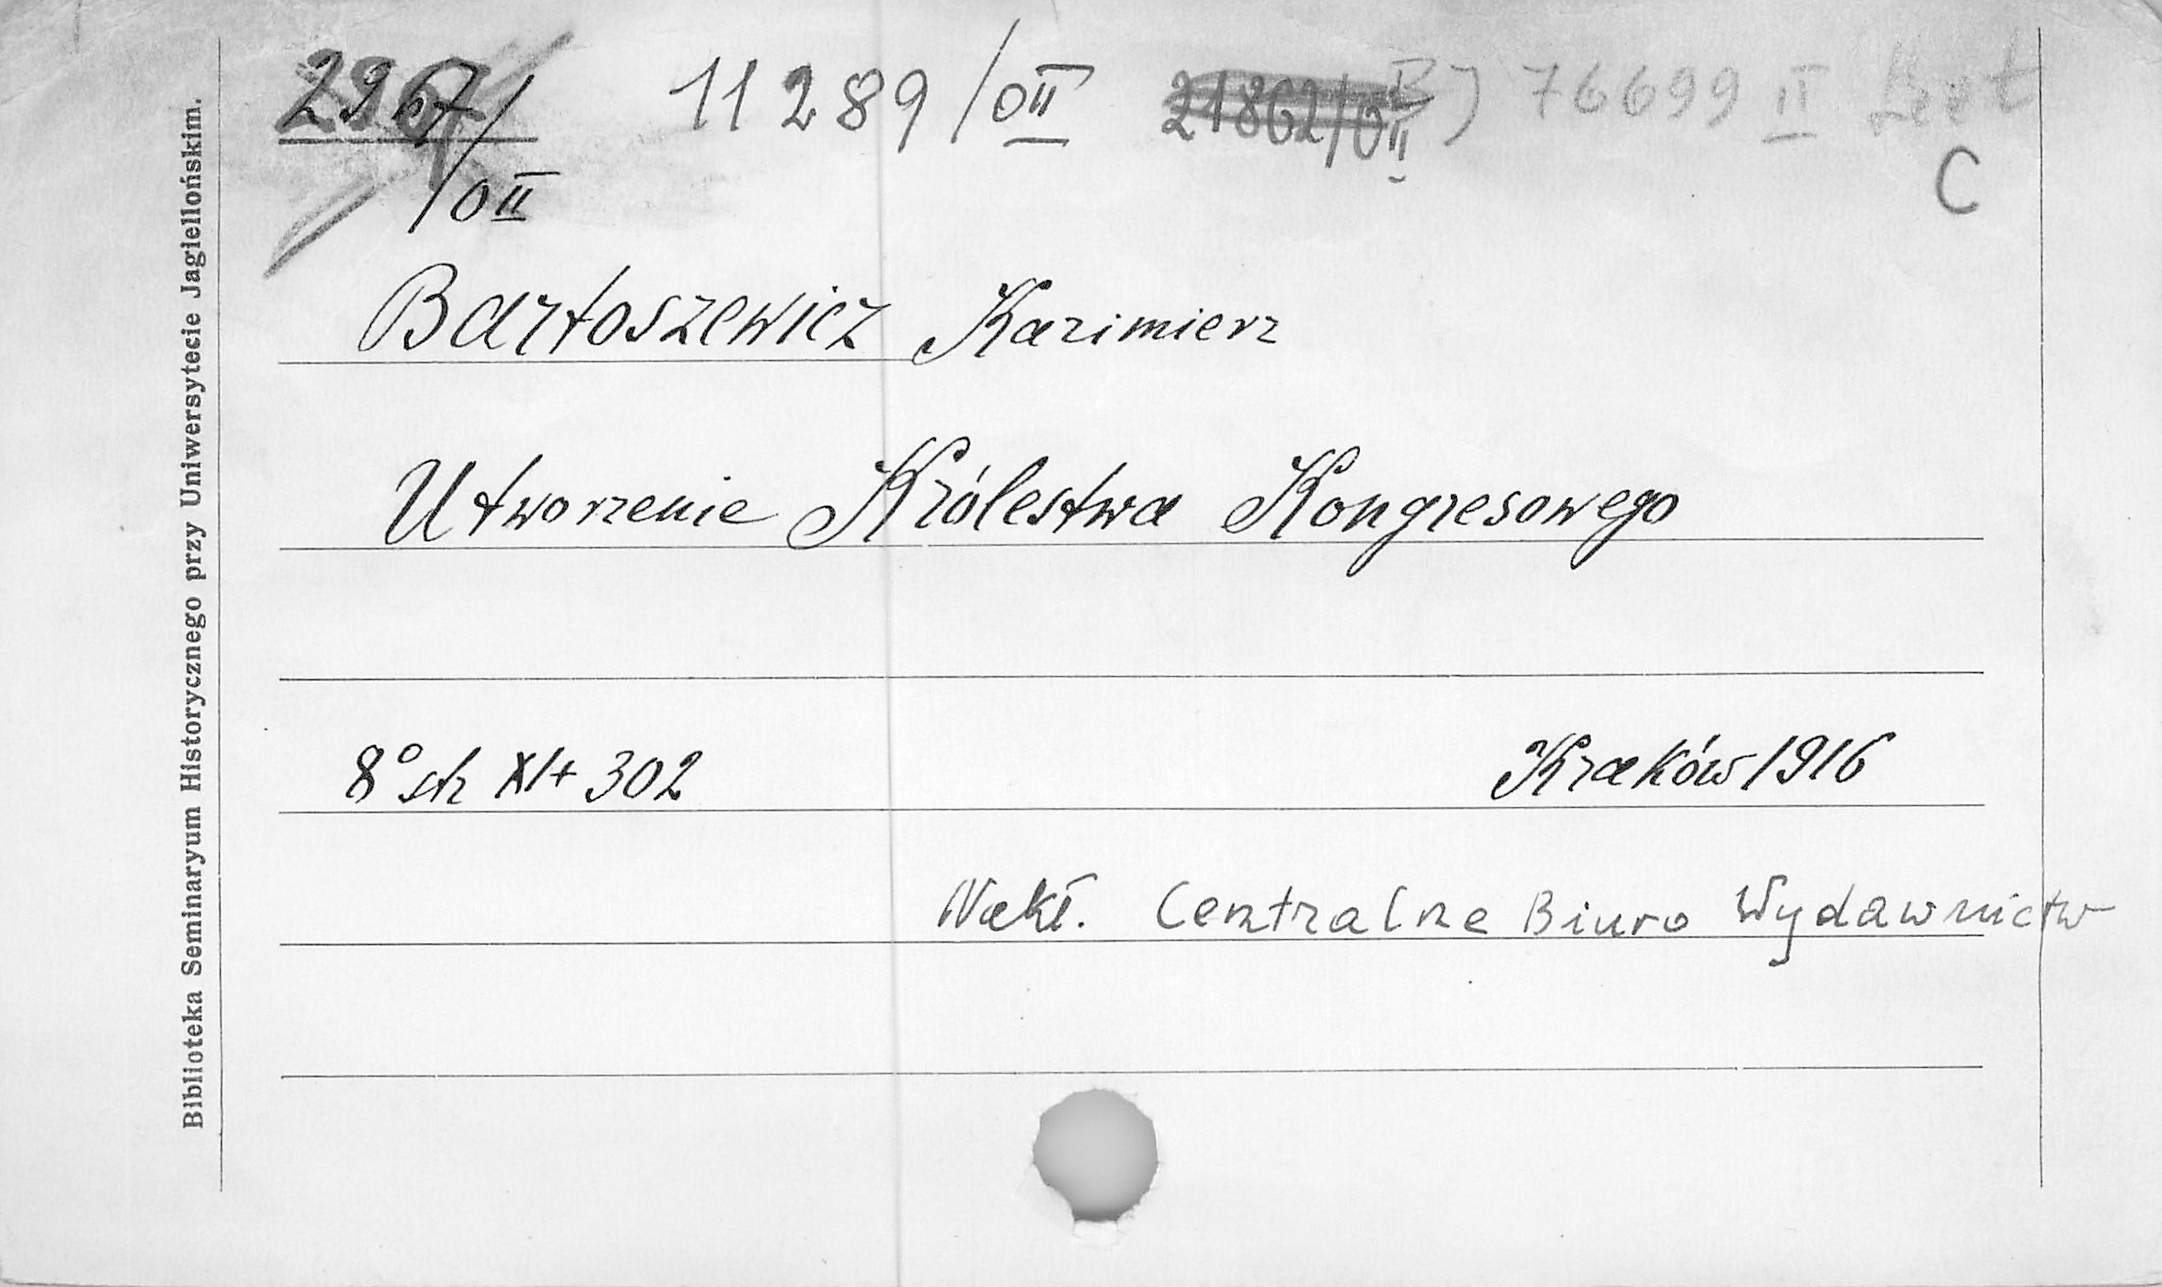 2967/OII 11289/OII 21862/OII BJ 76699 II
C
Bartoszewicz Kazimierz
Utworzenie Królestwa Kongresowego
8° str XI+302 Kraków 1916
Nakł. Centralne Biuro Wydawnictw
Biblioteka Seminaryum Historycznego przy Uniwersytecie Jagiellońskim.